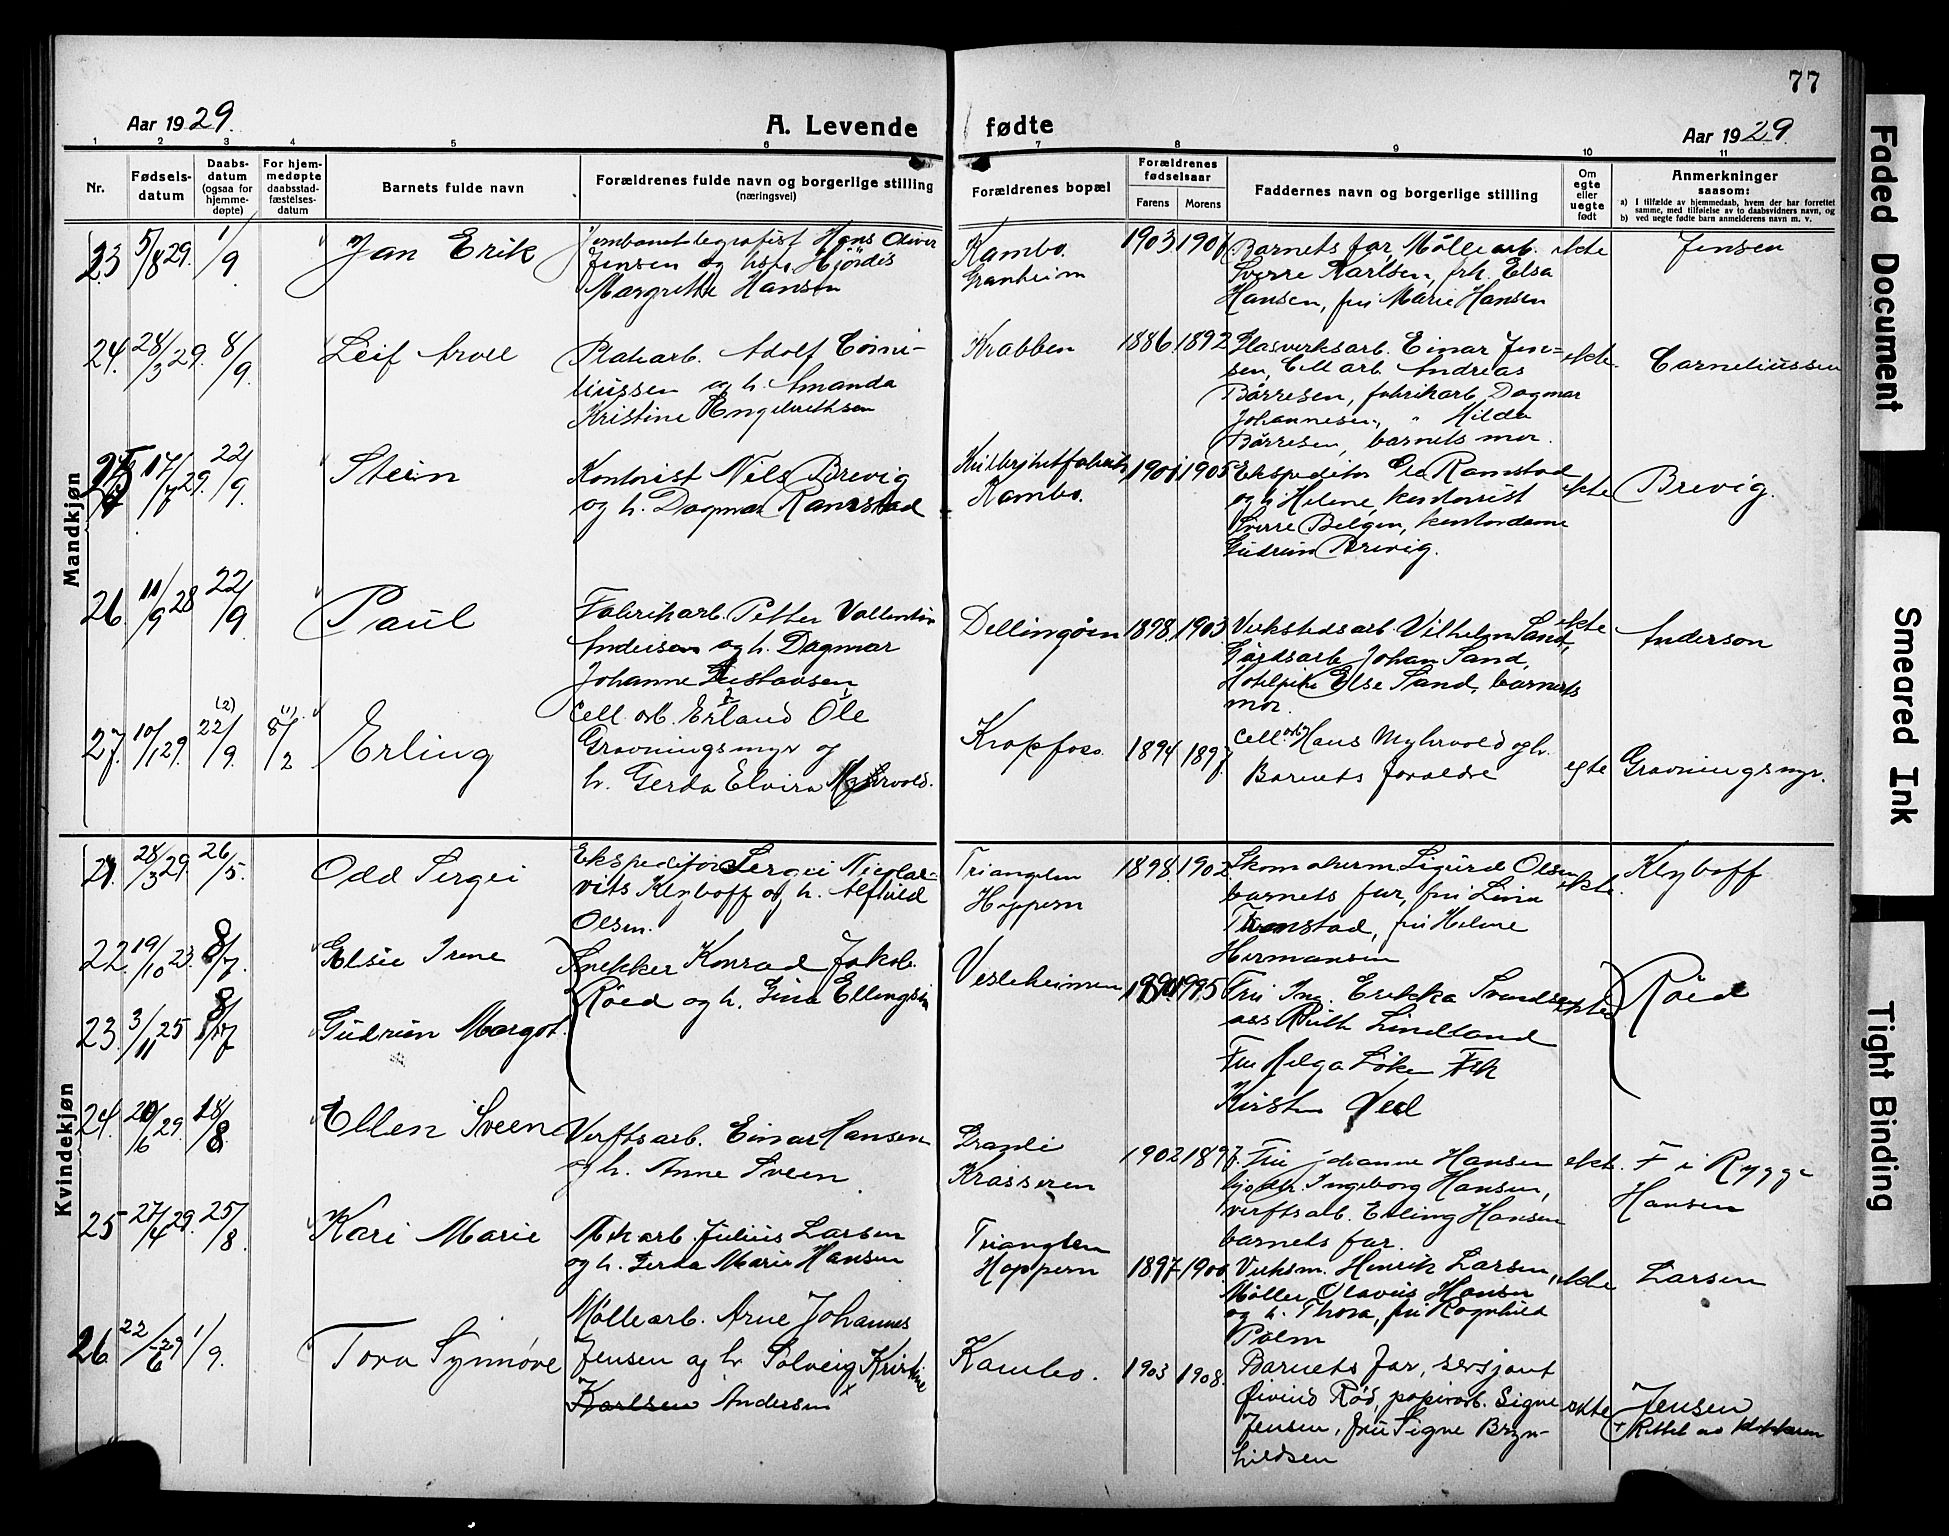 77
Aar 1929.
A. Levende fødte
Aar 1929.
1 2 3 4 5 6 7 8 9 10 11
Nr.
Fødsels-
datum
Daabs-
datum
(ogsaa for
hjemme-
døpte)
For hjem-
medøpte
daabsstad-
fæstelses-
datum
Barnets fulde navn
Forældrenes fulde navn og borgerlige stilling
(næringsvei)
Forældrenes bopæl
Forældrenes
fødselsaar
Farens
Morens
Faddernes navn og borgerlige stilling
Om
egte
eller
uegte
født
Anmerkninger
saasom:
a) I tilfælde av hjemmedaab, hvem der har forrettet
samme, med tilføielse av to daabsvidners navn, og
b) ved uegte fødte barn anmelderens navn m. v.
Mandkjøn
23 5/8 29. 1/9 Jan Erik
Jernbanetelegrafist Hans Oliver
Jensen og hstr. Hjördis
Margrethe Hansen
Kambo.
Granheim
1903
Barnets far, Möllearb.
Sverre Karlsen, frk. Elsa
Hansen, fru Marie Hansen
ekte
Jensen
24. 28/3 29. 8/9. Leif
Adolf Corne-
liussen og h. Amanda
Kristine Engebrethsen
Krabben
1886. 1892
Glasverksarb. Einar Jen-
sen, Cell arb Andreas
Börresen, fabrikarb. Dagmar
Johannesen, " Hilda
Börresen, barnets mor.
ekte.
Corneliussen
25 17/7 29. 22/9 Stein
Kontorist Nils Brevig
og h. Dagmar Ramstad
Kambo.
1901 1905
Ekspeditör Ole Ramstad
og h. Helene, kontorist
Sverre Belgen, kontordame
Gudrun Brevig.
ekte
Brevig.
26 11/9 28 22/9 Paul
Fabrikarb. Petter Vallentin
Andersen og h. Dagmar
Johanne Gustavsen
Dellingöen
1898. 1903
Verkstedsarb Vilhelm Sand,
Gårdsarb Johan Sand,
Hotelpike Else Sand, barnets
mor.
ekte
Anderson
27. 10/1 29. (2) 22/9. (1) 8/2 Erling
Cell. arb. Erland Ole
Gravningsmyr og
h. Gerda Elvira Myhrvold.
Kropfoss
1894 1897
Cell. arb. Hans Myhrvold og h.
Barnets foreldre
egte
Gravningsmyr.
Kvindekjøn
21. 28/3 29. 26/5. Odd Sergei
Ekspeditör Sergei Nicolae-
vits Klyboff og h. Alfhild
Olsen.
Trianglen
Hoppern
1898. 1902
Skomakerm. Sigurd Olsen
barnets far, fru Lina
Tronstad, fru Helene
Hermansen
ekte.
Klyboff
22. 19/10 23. 8/7. Elsie Irene
Snekker Konrad Jakob.
Röed og h. Gina Ellingsen
Vesleheimen
1890 1895
Fru Ing. Erikka Svendsen
ass Ruth Lindland
Fru Helga Löken Frk
Kirsten Ved
ekte
Röed
23. 3/11 25 8/7 Gudrun Margot.
24. 20/6 29. 18/8. Ellen Sveen
Verftsarb. Einar Hansen
og h. Anne Sveen.
Granli
Krasseren
1902 1897.
Fru Johanne Hansen
Ingeborg Hansen,
verftsarb. Erling Hansen
barnets far.
ekte.
F i Rygge
Hansen
25 27/4 29. 25/8. Kari Marie
Mek arb. Julius Larsen
og h. Gerda Marie Hansen
Trianglen
Hoppern
1897 1900
Verksm. Henrik Larsen,
Möller Olavus Hansen
og h. Thora, fru Ragnhild
Palm
ekte
Larsen
26 22/6 29 1/9. Tora Synnöve
Möllearb. Arne Johannes
Jensen og h. Solveig Kristine
Karlsen Andersen x
Kambo.
1903 1908.
Barnets far, sersjant
Öivind Röd, papirarb. Signe
Jensen, fru Signe Bryn-
hildsen
ekte
Jensen
+ Rettet av klokkeren
Faded Document
Smeared Ink
Tight Binding